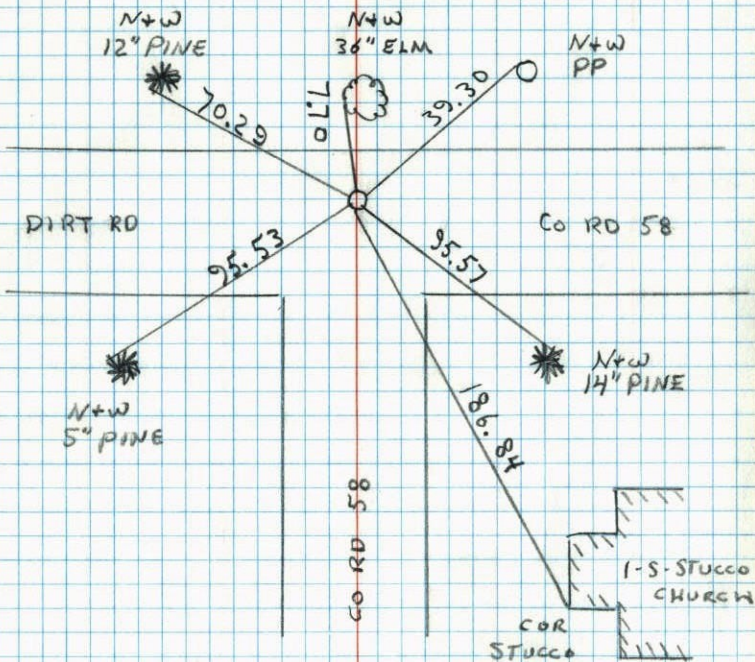 N+W
12" PINE
N+W
36" ELM
N+W
PP
70.29
7.70
39.30
DIRT RD
CO RD 58
95.53
95.57
N+W
5" PINE
N+W
14" PINE
186.84
CO RD 58
1-S-STUCCO
CHURCH
COR
STUCCO